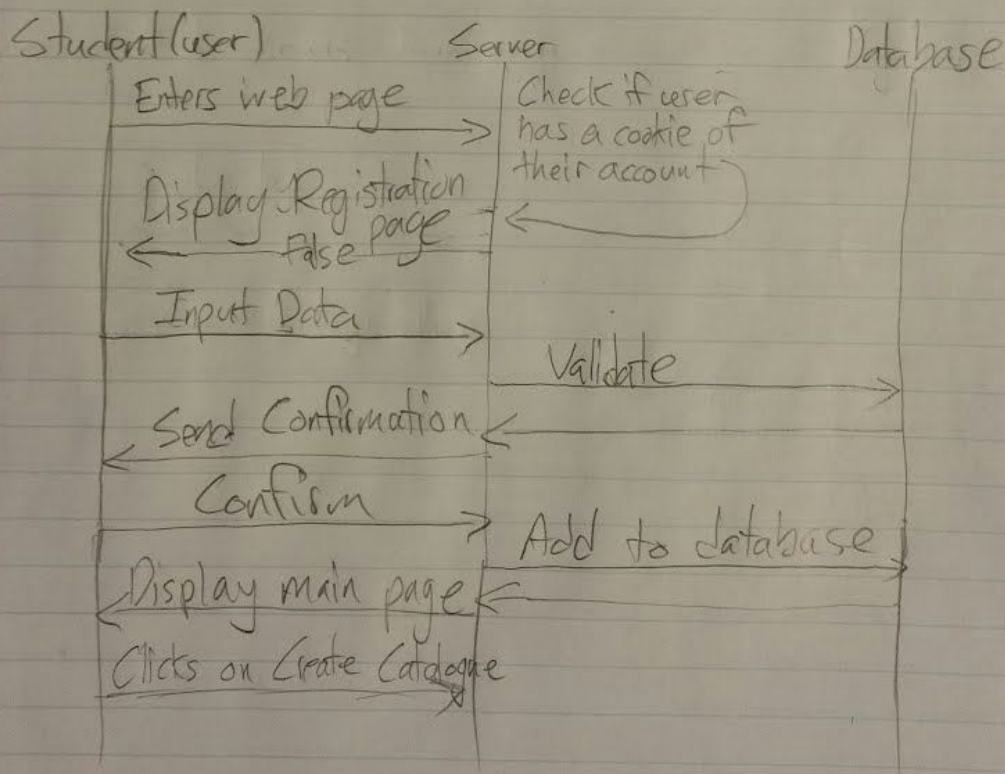 Student (user)
Server
Database
Enters web page
Check if user
has a cookie of
their account
Display Registration
page
False
Input Data
Validate
Send Confirmation
Confirm
Add to database
Display main page
Clicks on Create Catalogue